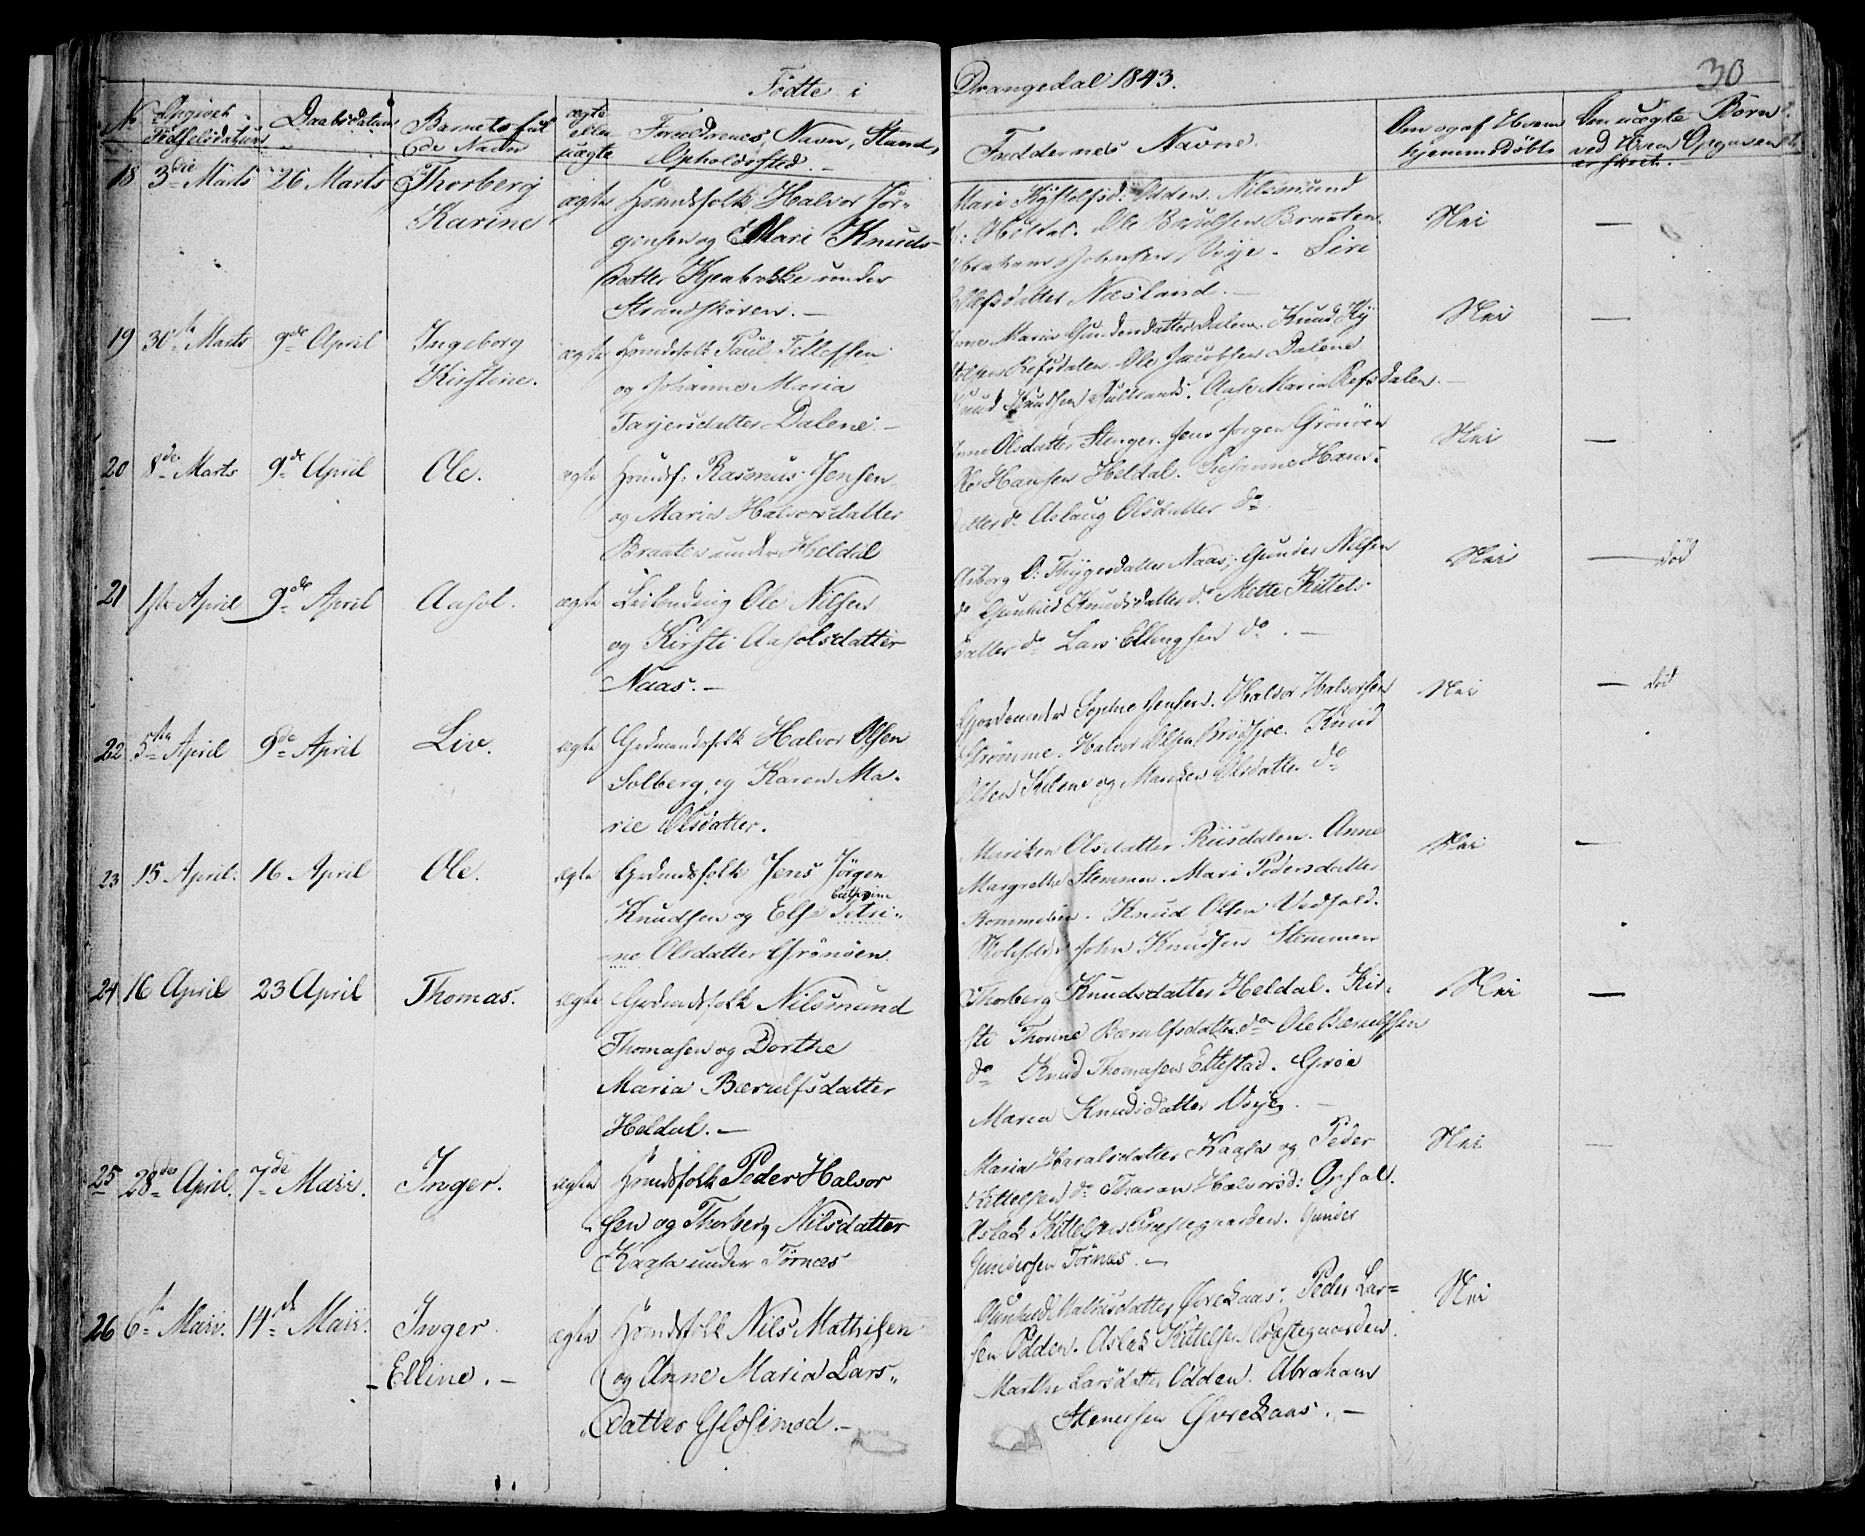 30
Fødte i Drangedal 1843.
No Opgivet Fødselsdatum
Daabsdatum
Barnets fulde Navn
ægte eller uægte
Forældrenes Navn, Stand, Opholdssted.
Faddernes Navne.
Om og af Hvem hjemmedøbt
Om uægte Børn ved Hvem Opgaven er skeet.
18 3die Marts 26 Marts Thorberg Karine ægte
Huusmdsfolk Halvor Jør-
gensen og Mari Knuds-
datter under
Strandskoven. –
Mari Odden. Nilsmund
Ole Bærulfsen Braaten
Abraham Johnsen Voje. Siri
datter Næsland. –
Nei –
19 30te Marts 9de April Ingeborg Kirstine. ægte
Huusmdsfolk Paul Tellefsen
og Johanne Maria
Tarjersdatter Dalene. –
Anne Maria Gundersdatter Dalene. Knud Ky
Refsdalen. Ole Jacobsen Dalene
Knud Knudsen. Aase Maria Refsdalen. –
Nei –
20 8de Marts 9de April Ole. ægte
Huusmdsf: Rasmus Jensen
og Maria Halvorsdatter
Braaten under Heldal
Anne Olsdatter Stenger. Jens Jørgen Grønøen
Ole Hansen Heldal. Susanne Hans-
datter do Aslaug Olsdatter do
Nei –
21 1ste April 9de April Aasol. ægte
Ole Nilsen
og Kirsti Aasolsdatter
Naas. –
Asborg O: Thygesdatter Naas; Gunder Nilsen
do Gunhild Knudsdatter do Mette Kittels-
datter do Lars Ellingsen do. –
Nei – død
22 5te April 9de April Liv. ægte
Grdmandsfolk Halvor Olsen
Solberg, og Karen Ma-
rie Olsdatter.
Sophie Jensen. Halvor Halvorsen
Strømme. Halvor Olsen Brødsjoe. Knud
Olsen Kilene og Mariken Olsdatter do
Nei – død
23 15 April. 16 April Ole. ægte
Grdmdsfolk Jens Jørgen
Cathrine
Knudsen og Else Petri-
ne Olsdatter Grønøen
Mariken Olsdatter Riisdalen. Anne
Margrethe Stemmen. Mari Pedersdatter
Knud Olsen
John Knudsen Stemmen
Nei –
24 16 April 23 April Thomas. ægte
Grdmdsfolk Nilsmund
Thomasen og Dorthe
Maria Bærulfsdatter
Heldal. –
Thorberg Knudsdatter Heldal. Kir-
sti Thonne Bærulfsdatter do Ole Bærulfsen
do Knud Thomasen Ettestad. Groe
Maria Knudsdatter Voje. –
Nei –
25 28de April. 7de Maii. Inger. ægte
Huusmdsfolk Peder Halvor
sen og Thorberg Nilsdatter
Kaasa under Tørnes
Maria Haralsdatter Kaasa og Peder
Kittelsen do Taran Halvorsd: Opsal.
Aslak Kittelsen Præstegaarden. Gunder
Gundersen Tørnes. –
Nei –
26 6te Maii. 14de Maii. Inger Elline. – ægte
Huusmdsfolk Nils Mathisen
og Anne Maria Lars-
datter –
Gunhild Mathisdatter Øvrekaas. Peder Lar-
sen Odden. Aslak Kittelsen Præstegaarden.
Marthe Larsdatter Odden. Abraham
Stenersen Øvrekaas. –
Nei